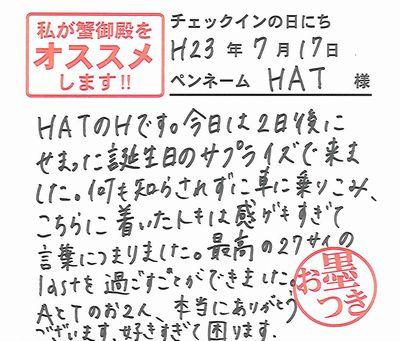 私が蟹御殿を
オススメ
します!!
チェックインの日にち
H23 年 7 月 17 日
ペンネーム HAT 様
HATのHです。今日は2日後に
せまった誕生日のサプライズで来ま
した。何も知らされずに車に乗りこみ、
こちらに着いたときは感げきすぎて
言葉につまりました。最高の27サイの
lastを過ごすことができました。
AとTのお2人、本当にありがとう
ございます。好きすぎて困ります。
お墨つき